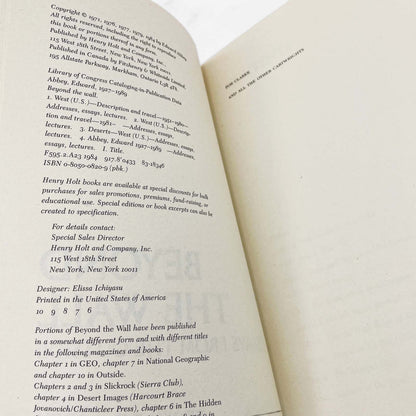 Copyright © 1971, 1976, 1977, 1979, 1984 by Edward Abbey
All rights reserved, including the right to reproduce
this book or portions thereof in any form.
Published by Henry Holt and Company, Inc.,
115 West 18th Street, New York, New York 10011.
Published in Canada by Fitzhenry & Whiteside Limited,
195 Allstate Parkway, Markham, Ontario L3R 4T8.
Library of Congress Cataloging-in-Publication Data
Abbey, Edward, 1927–1989
Beyond the wall.
1. West (U.S.)—Description and travel—1951–1980—
Addresses, essays, lectures. 2. West (U.S.)—Descrip-
tion and travel—1981– —Addresses, essays,
lectures. 3. Deserts—West (U.S.)—Addresses, essays,
lectures. 4. Abbey, Edward 1927–1989 —Addresses,
essays, lectures. I. Title.
F595.2.A23 1984 917.8'0433 83-18346
ISBN 0-8050-0820-9 (pbk.)
Henry Holt books are available at special discounts for bulk
purchases for sales promotions, premiums, fund-raising, or
educational use. Special editions or book excerpts can also be
created to specification.
For details contact:
Special Sales Director
Henry Holt and Company, Inc.
115 West 18th Street
New York, New York 10011
Designer: Elissa Ichiyasu
Printed in the United States of America
10 9 8 7 6
Portions of Beyond the Wall have been published
in a somewhat different form and with different titles
in the following magazines and books:
Chapter 1 in GEO, chapter 7 in National Geographic
and chapter 10 in Outside.
Chapters 2 and 3 in Slickrock (Sierra Club),
chapter 4 in Desert Images (Harcourt Brace
Jovanovich/Chanticleer Press), chapter 6 in The Hidden
FOR CLARKE
AND ALL THE OTHER CARTWRIGHTS